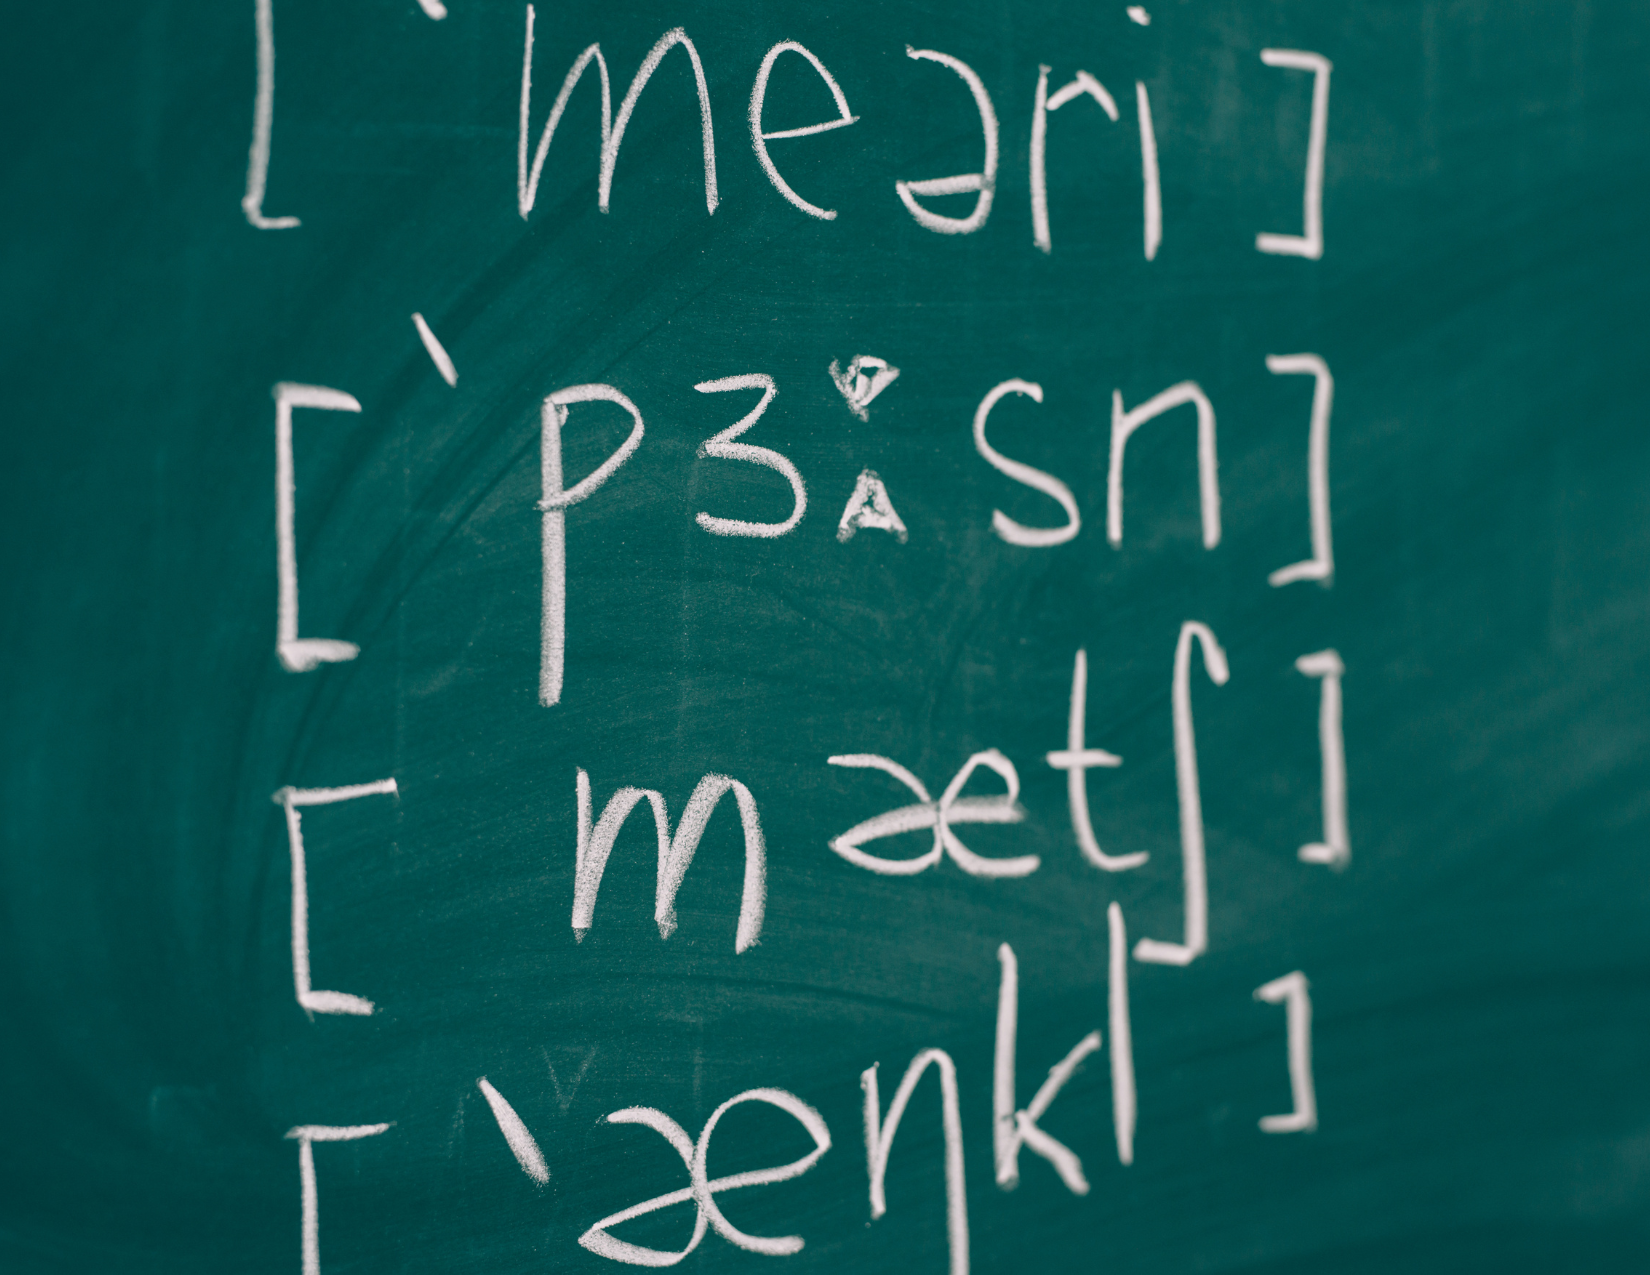 [ˈmeəri]
[ˈpɜːsn]
[mætʃ]
[ˈæŋkl]